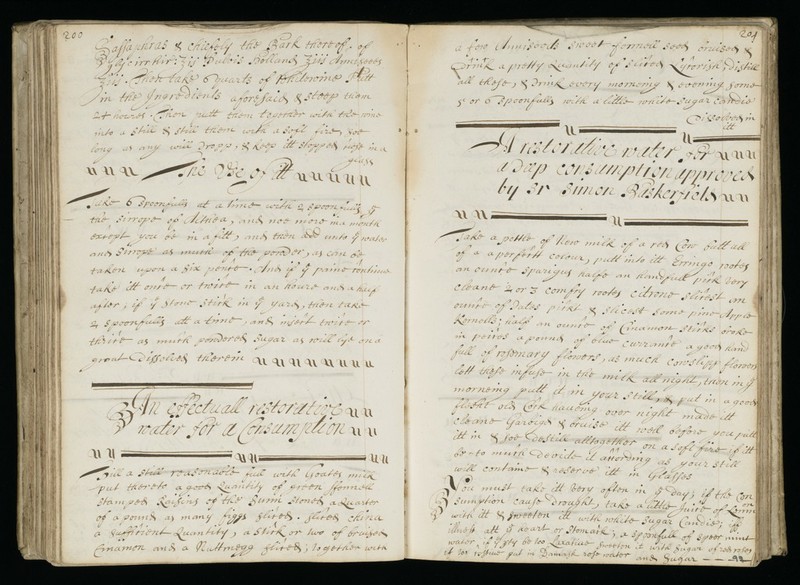 200
Sassaphras & chiefely the Bark thereof, of
in the Ingredients aforesaid & steep them
24 houres. Then putt them together with the wine
into a Still & still them with a soft fire, soe
long as any will dropp, & keep itt stopped close in a
glass
The Use of itt
Take 6 spoonfulls at a time with 2 spoonfulls of
the sirrope of Althea, and noe more in a mouth
except you be in a fitt, and then add unto yͤ water
and Sirrope as much of the powder, as can be
taken upon a six pence. And if yͤ paine continue
take itt once or twice in an houre and a half
after, if yͤ Stone stick in yͤ yard, then take
2 spoonfulls att a time, and inject twice or
thrice as much powdered Sugar as will lye on a
groat Dissolved therein
An effectuall restorative
water for a Consumption
Fill a Still reasonable full with Goates milk
put thereto a good Quantity of green fennell
stamped Raisins of the Sunn stoned a quarter
of a pound, as many figgs sliced, sliced China
a sufficient Quantity, a Stick or two of bruised
Cinamon and a Nuttmegg sliced, together with
201
a few Anniseeds sweet fennell seed bruised &
a pretty Quantity of sliced Liquorish, Distill
all these, & Drink every morneing & evening some
5 or 6 spoonfulls with a little white sugar Candie
Disolved in
itt
A restorative water for
a Deep consumption approved
by Sr Simon Baskerfield
Take a pottle of new milk of a red Cow butt all
of a perfect colour, putt into itt Eringo rootes
an ounce Sparigus halfe an handfull pick very
cleane 2 or 3 comfry rootes citrons sliced an
ounce of Dates pickt & sliced some pine Apple
Kernells, half an ounce of Cinamon sticks broke
in peices a pound of blue currants a good hand
full of rosemary flowers, as much cowslipp flowers
lett these infuse in the milk all night, then in yͤ
morneing putt it in your still & put in a good
flesht old Cock haveing over night made itt
cleane & bruise itt well before you putt
itt in & soe Destill alltogether on a soft fire if itt
be to much Devide it according as your still
will containe & reserve itt in Glasses
You must take itt very often in yͤ day, if the Con
sumption cause Drought, take a little Juice of Lemm
on
with itt & sweeten itt with white Sugar Candie, if
illness att yͤ heart or Stomack, a spoonfull of Speer mint
water, if yͤ pty be too Laxative sweeten it with Sugar of red roses
put in Damask rose water and Sugar